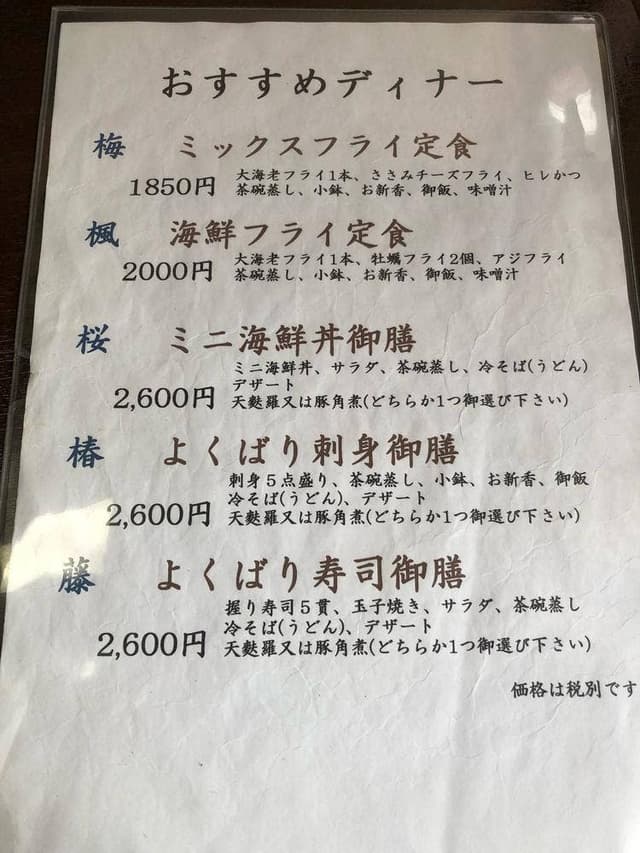 おすすめディナー
梅 ミックスフライ定食
大海老フライ1本、ささみチーズフライ、ヒレかつ
1850円 茶碗蒸し、小鉢、お新香、御飯、味噌汁
楓 海鮮フライ定食
大海老フライ1本、牡蠣フライ2個、アジフライ
2000円 茶碗蒸し、小鉢、お新香、御飯、味噌汁
桜 ミニ海鮮丼御膳
ミニ海鮮丼、サラダ、茶碗蒸し、冷そば(うどん)
デザート
2,600円 天麩羅又は豚角煮(どちらか1つ御選び下さい)
椿 よくばり刺身御膳
刺身5点盛り、茶碗蒸し、小鉢、お新香、御飯
冷そば(うどん)、デザート
2,600円 天麩羅又は豚角煮(どちらか1つ御選び下さい)
藤 よくばり寿司御膳
握り寿司5貫、玉子焼き、サラダ、茶碗蒸し
冷そば(うどん)、デザート
2,600円 天麩羅又は豚角煮(どちらか1つ御選び下さい)
価格は税別です